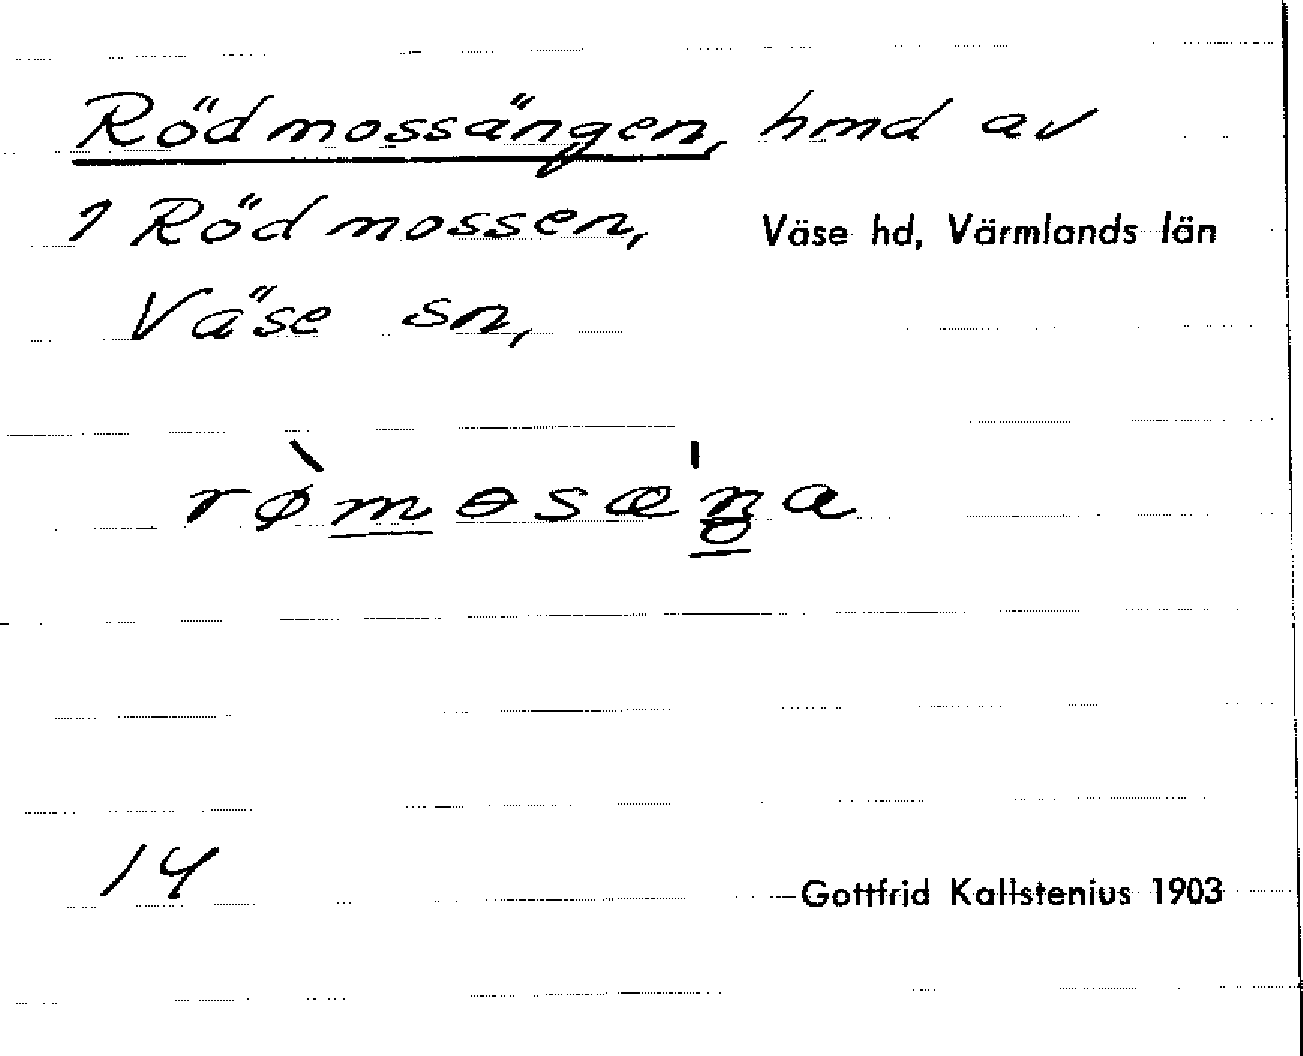 Rödmossängen, hmd av
1 Rödmossen, Väse hd, Värmlands län
Väse sn,
14
Gottfrid Kallstenius 1903